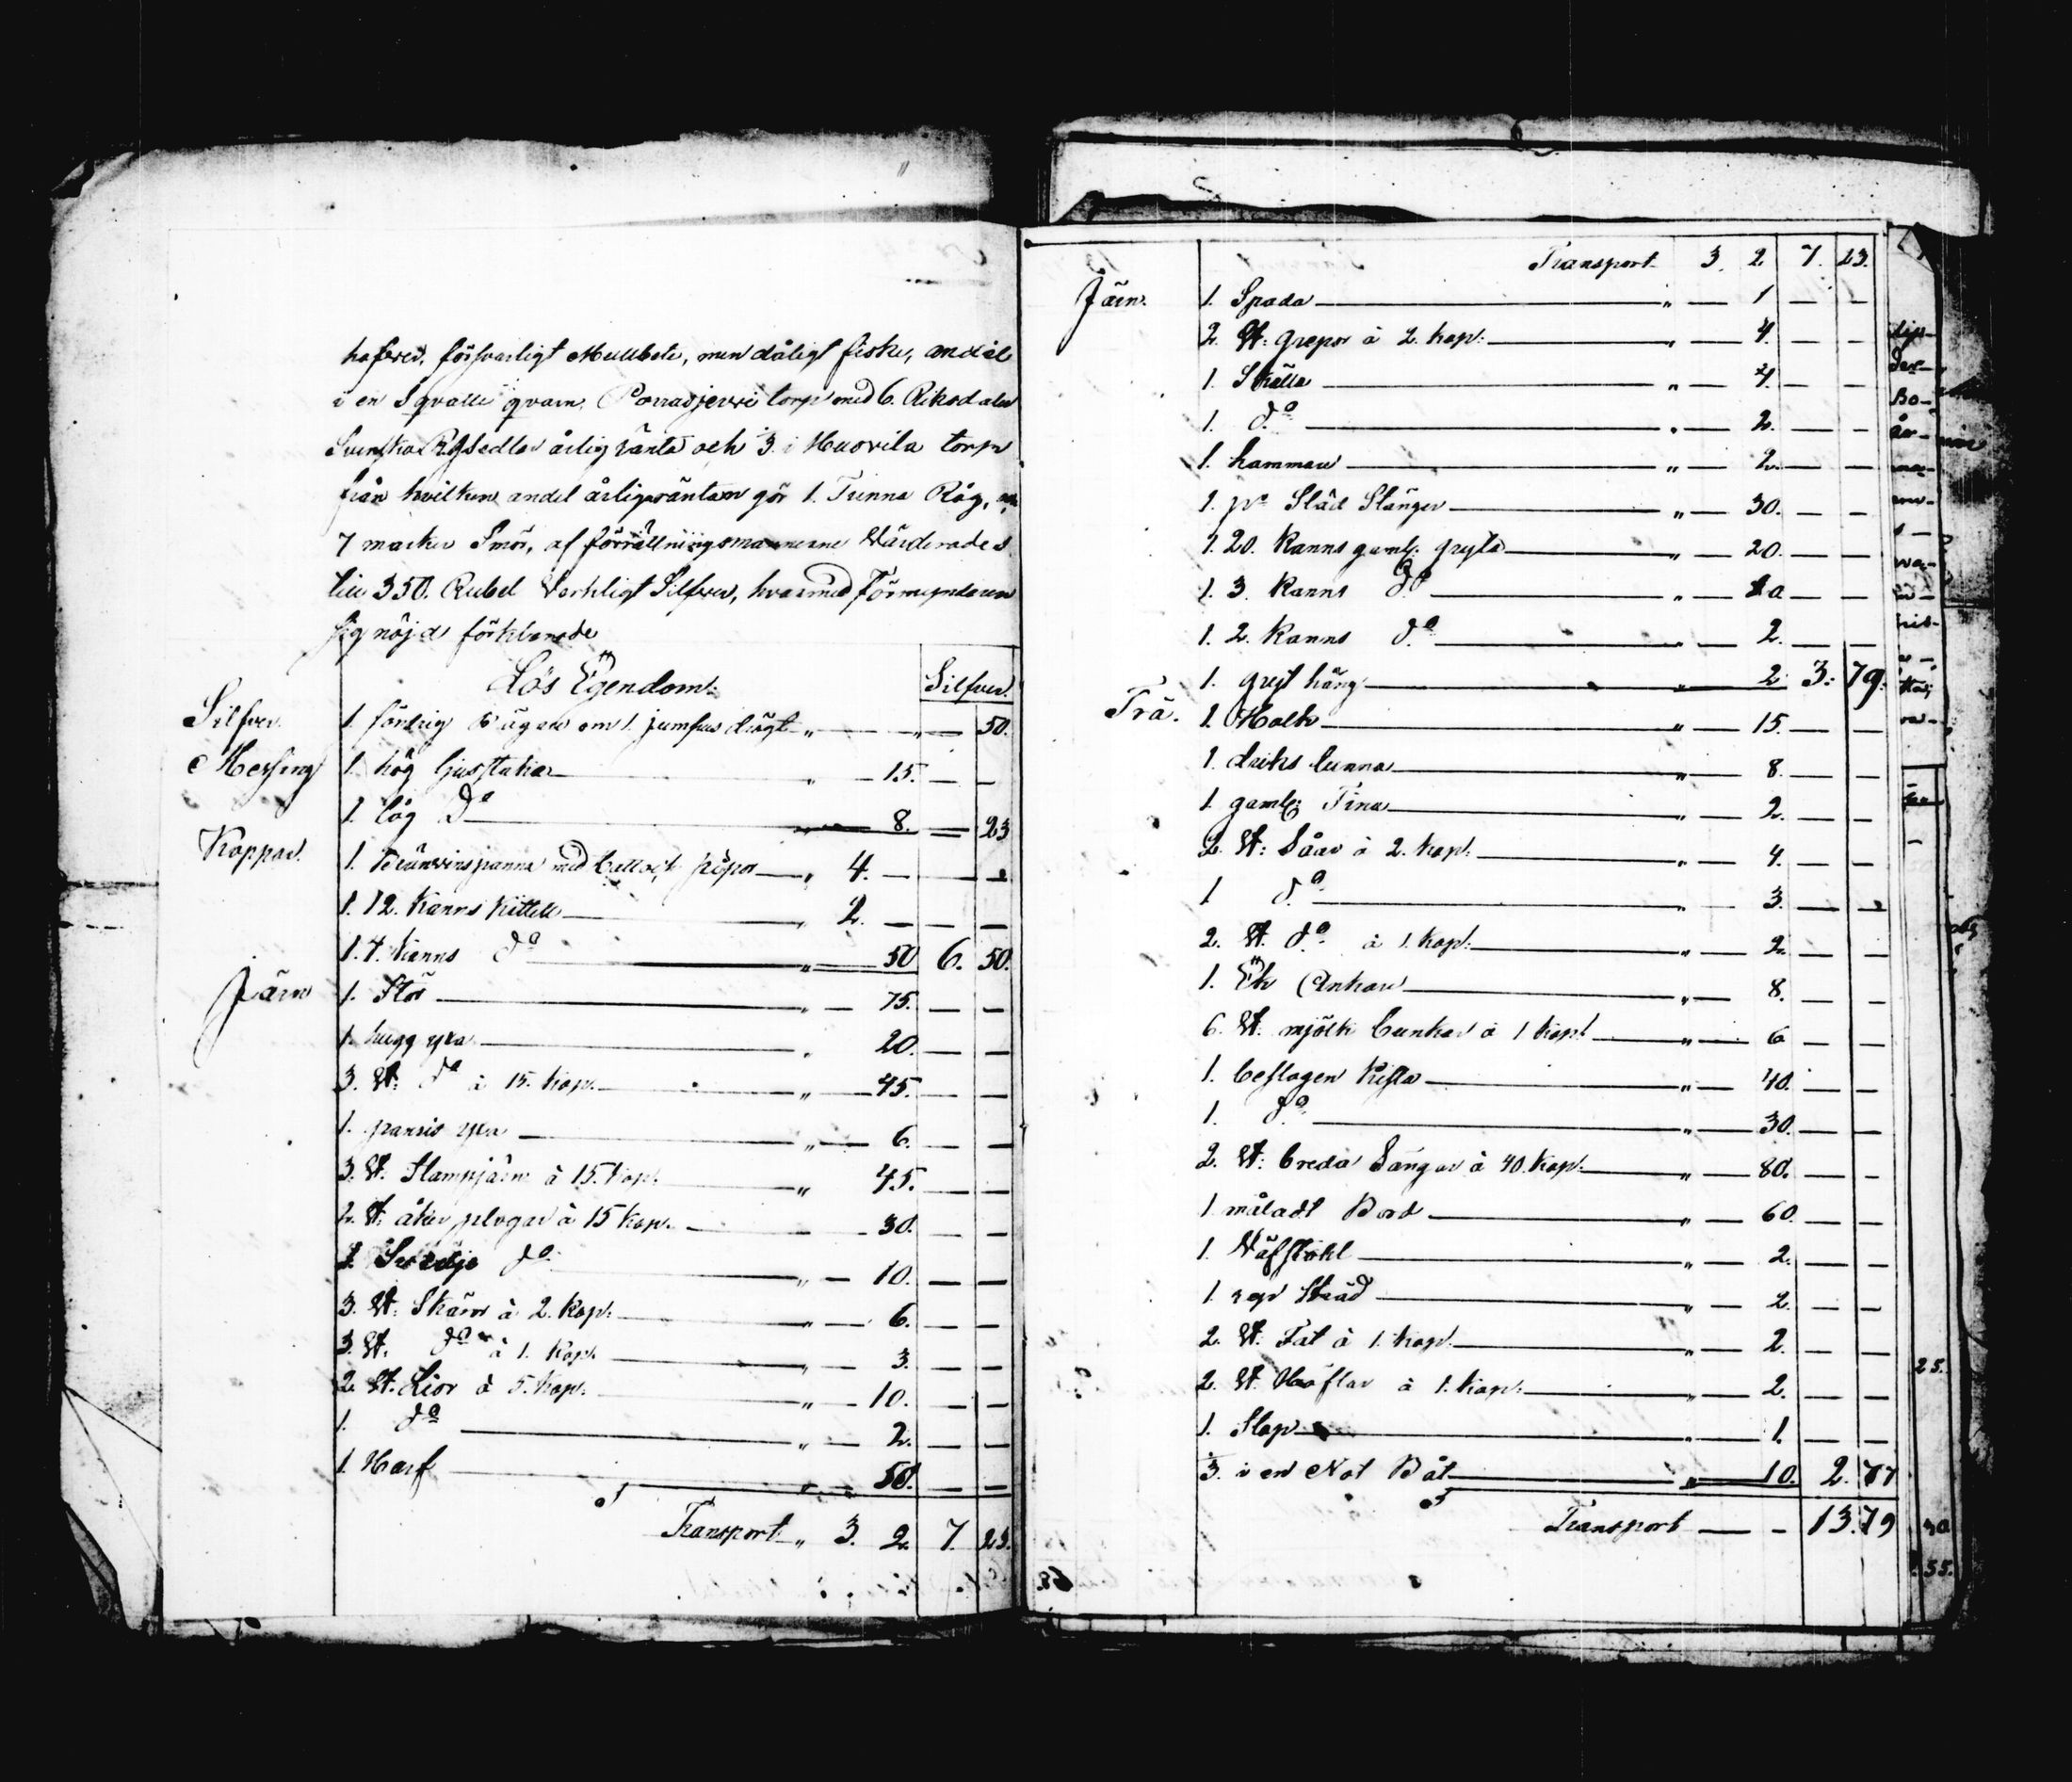 hafvud, försvarligt Mulbete, men dåligt fiske, andel
i en Sqvallt qvarn. Porrasjerwi torp med 6. Riksdaler
Svenska RGsedlar årlig ränta och 3 i Huovila torp
från hvilken andel årliga räntan gör 1. Tunna Råg, och
7 marker Smör, af förrättningsmannerne Värderades
till 350. Rubel Verkligt Silfver, hvarmed Förmyndaren
sig nöjd förklarade
Lös Egendom. Silfver.
Silfver. 1. om 1. jumfrus drägt „ „ — 50.
Messing 1. hög ljusstaka „ — 15. — —
1. låg Do 8. — 23
Koppar. 1. Brännvinspanna med hatt och pipor „ 4. — — —
1. 12. Kanns Kittell „ 2. — — —
1. 4. Kanns do „ 50 6. 50.
Järn 1. Stör „ — 75. — —
1. hugg yxa „ 20. — —
3. St: do à 15. Kop. „ — 45. — —
1. yxa „ — 6. — —
3. St. Stampjärn à 15. Kop. „ 45. — —
2. St. åker plogar à 15 Kop. — 30. — —
1. Svedje do „ — 10. — —
3. St. Skäror à 2. Kop. „ — 6. — —
3. St. do à 1. Kop. „ — 3. — —
2. St: Liar à 5. Kop. „ — 10. — —
1. do „ — 2. — —
1. Harf „ 50. — —
Transport „ 3. 2. 7. 23.
Transport 3. 2 7. 23.
Järn. 1. Spada „ — 1 — —
2. St: grepar à 2. Kop. „ — 4. — —
1. Skälla „ — 4. — —
1. do „ — 2. — —
1. hammare „ — 2. — —
1. pr Släd Stänger „ — 30. — —
1. 20. Kanns gaml. gryta „ — 20. — —
1. 3. Kanns do „ — 10 — —
1. 2. Kanns do „ — 2. — —
1. gryt häng 2 3: 79.
Trä. 1. Holk „ — 15. — —
1. driks tunna „ — 8. — —
1. gaml. Tina „ — 2. — —
2. St: Såar à 2. Kop. „ — 4. — —
1 do „ — 3. — —
2. St. do à 1. Kop. „ — 2. — —
1. Ek Ankare „ — 8. — —
6. St. mjölk bunkar à 1 Kop. „ — 6 — —
1. beslagen Kista „ — 40. — —
1. do „ — 30. — —
2. St: breda Sängar à 40. Kop. „ — 80. — —
1 måladt Bord „ — 60 — —
1. Väfstohl „ — 2. — —
1. „ — 2. — —
2. St. Fat à 1. Kop. „ — 2. — —
2. St. à 1. Kop. „ — 2. — —
1. Stop „ — 1. — —
3. i en Not Båt „ 10. 2. 77
Transport — — 13. 79